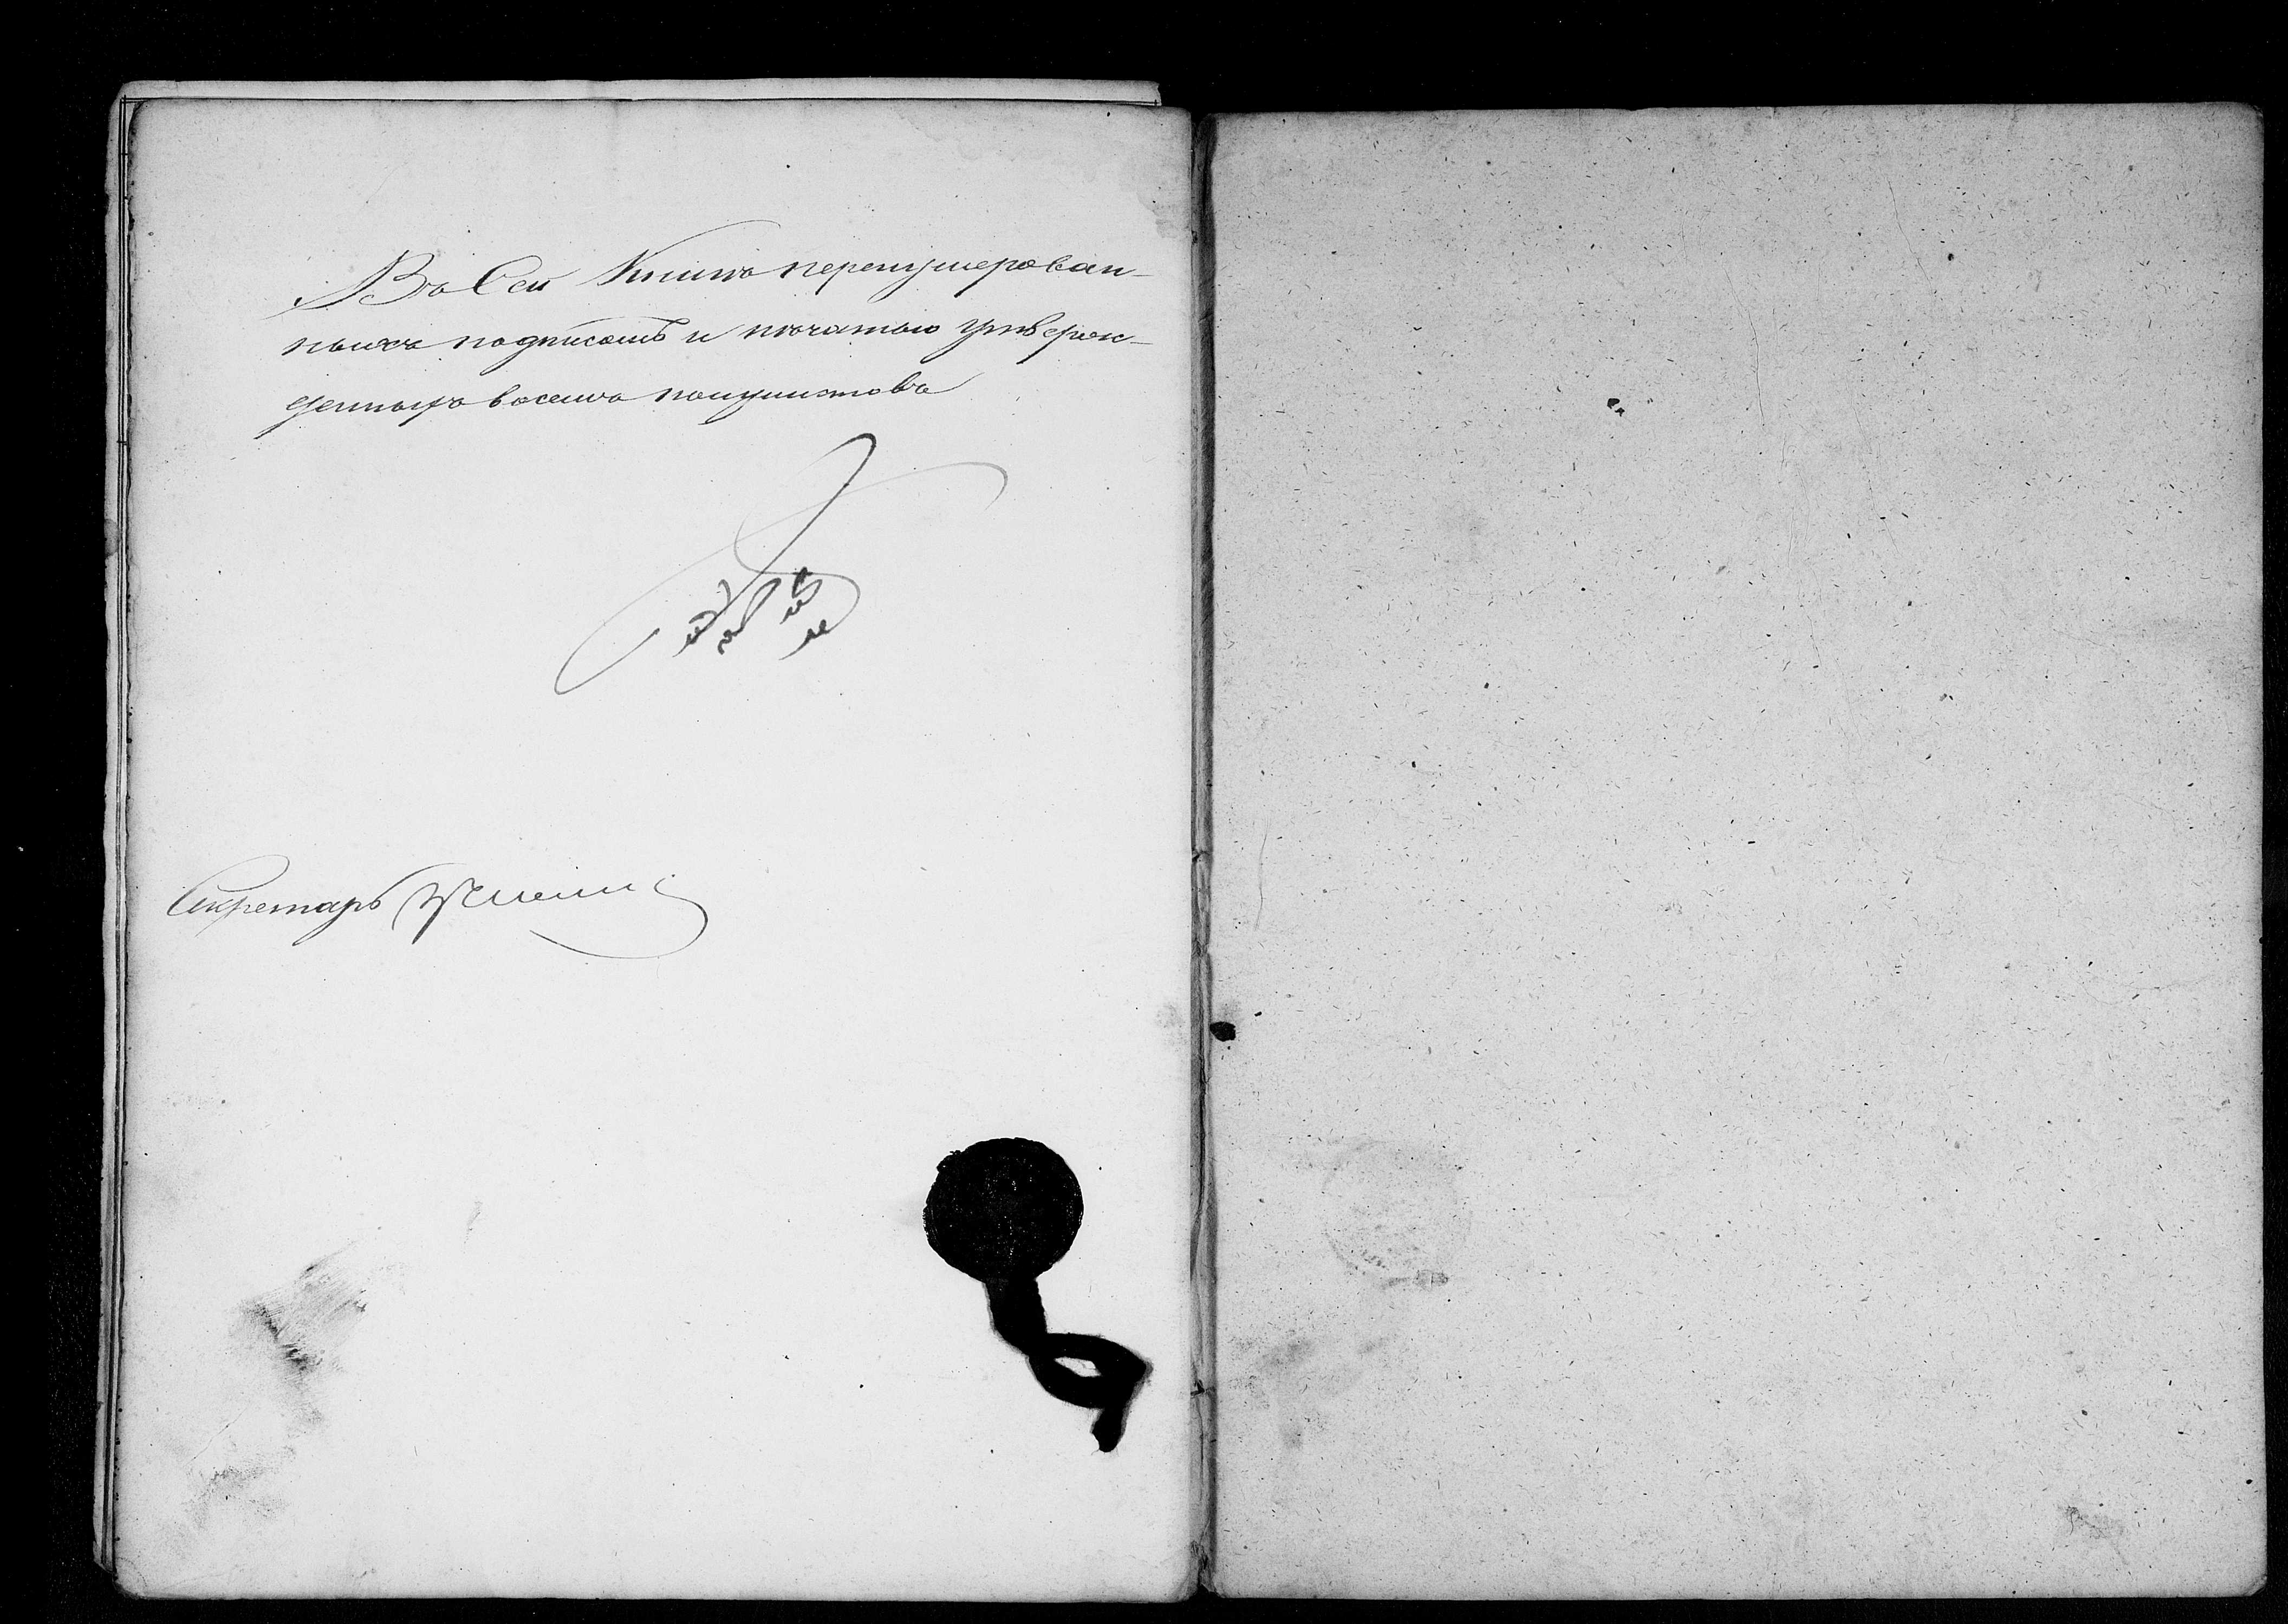 Въ Сей Книги перенумерован-
ныхъ подписомъ и печатью утверж-
денныхъ восемь полулистовъ
Секретарь